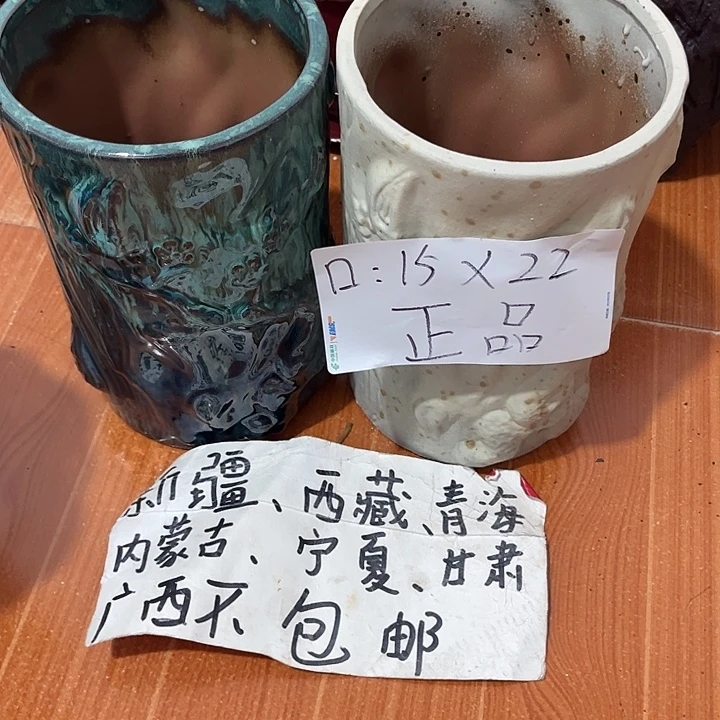 口:15×22
正品
新疆、西藏、青海
内蒙古、宁夏、甘肃
广西不包邮